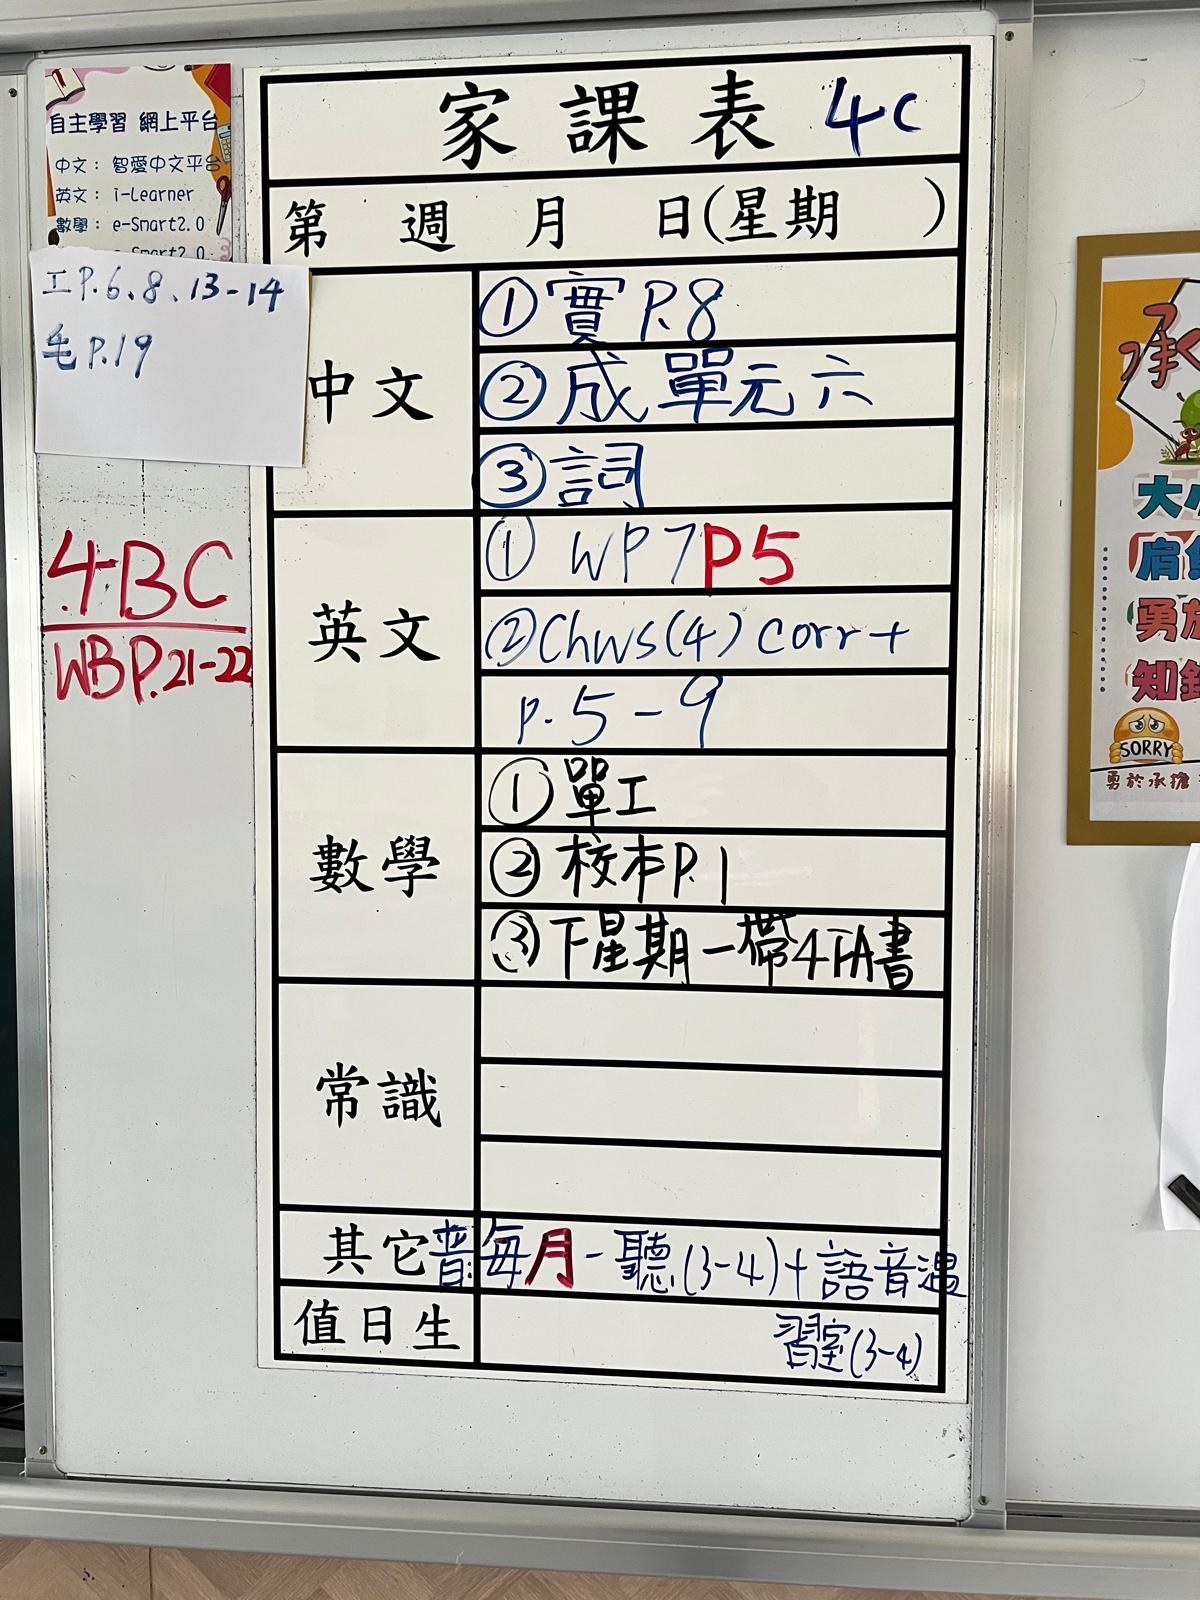 自主學習 網上平台
中文： 智愛中文平台
英文： i-Learner
數學： e-Smart2.0
e-Smart2.0
工P.6、8、13-14
毛P.19
4BC
WBP.21-22
家課表 4C
第 週 月 日(星期 )
中文
①實P.8
②成單元六
③詞
英文
① WP7P5
②Chws(4) corr+
p.5-9
數學
①單工
②校本P.1
③下星期一帶4下A書
常識
其它 普:每月-聽(3-4)+語音溫
習室(3-4)
值日生
大小
勇於
SORRY
勇於承擔